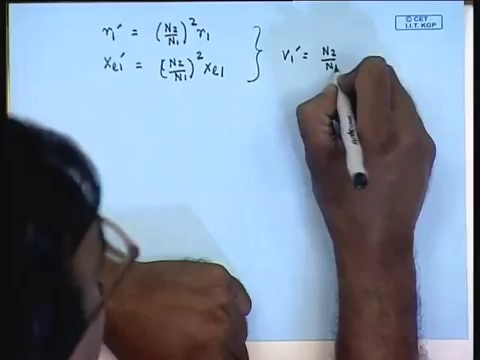 © CET
I.I.T. KGP
r₁′ = (N₂/N₁)² r₁
x_{l1}′ = (N₂/N₁)² x_{l1} } V₁′ = N₂/N₁